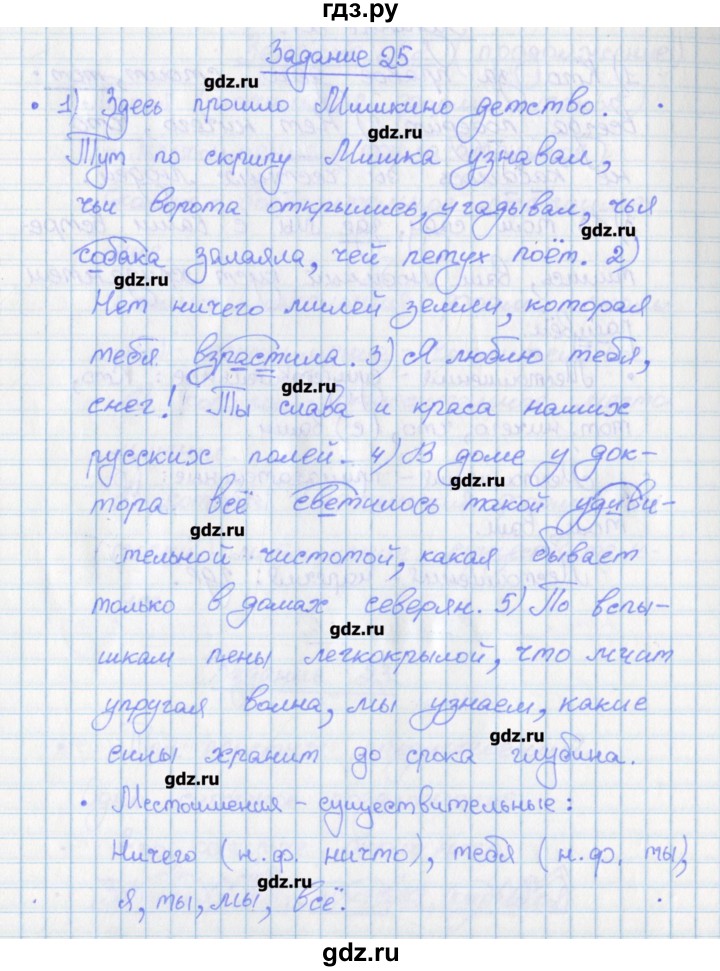 гдз.ру
Задание 25
gdz.ru
• 1) Здесь прошло Мишкино детство.
gdz.ru
Тут по скрипу Мишка узнавал,
чьи ворота открылись, угадывал, чья
gdz.ru
собака залаяла, чей петух поёт. 2)
gdz.ru
Нет ничего милей земли, которая
тебя взрастила. 3) Я люблю тебя,
gdz.ru
снег! Ты слава и краса наших
русских полей. 4) В доме у док-
gdz.ru
тора всё светилось такой удиви-
gdz.ru
тельной чистотой, какая бывает
только в домах северян. 5) По вспы-
gdz.ru
шкам пены легкокрылой, что мчит
упругая волна, мы узнаем, какие
gdz.ru
силы хранит до срока глубина.
gdz.ru
• Местоимения - существительные:
Ничего (н.ф. ничто), тебя (н.ф. ты),
gdz.ru
я, ты, мы, всё.
gdz.ru